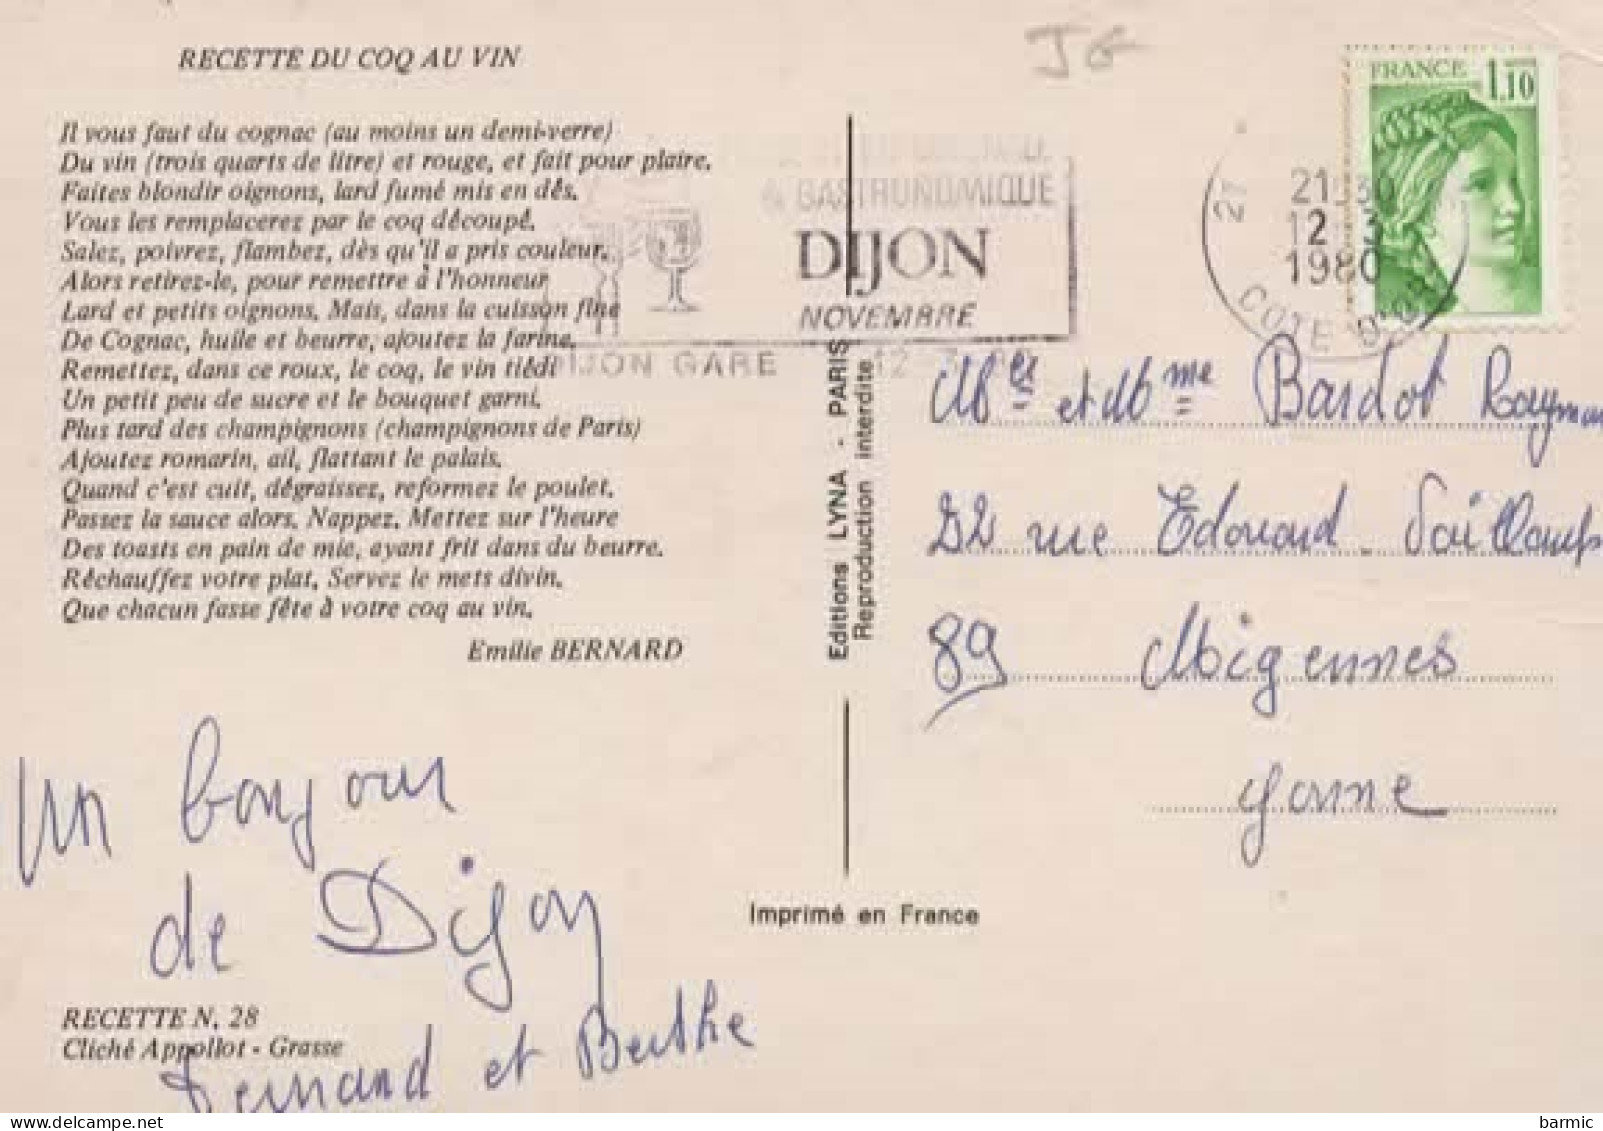 RECETTE DU COQ AU VIN
Il vous faut du cognac (au moins un demi-verre)
Du vin (trois quarts de litre) et rouge, et fait pour plaire.
Faites blondir oignons, lard fumé mis en dés.
Vous les remplacerez par le coq découpé.
Salez, poivrez, flambez, dès qu'il a pris couleur.
Alors retirez-le, pour remettre à l'honneur
Lard et petits oignons. Mais, dans la cuisson fine
De Cognac, huile et beurre, ajoutez la farine.
Remettez, dans ce roux, le coq, le vin tiédi
Un petit peu de sucre et le bouquet garni.
Plus tard des champignons (champignons de Paris)
Ajoutez romarin, ail, flattant le palais.
Quand c'est cuit, dégraissez, reformez le poulet.
Passez la sauce alors. Nappez. Mettez sur l'heure
Des toasts en pain de mie, ayant frit dans du beurre.
Réchauffez votre plat. Servez le mets divin.
Que chacun fasse fête à votre coq au vin.
Emilie BERNARD
Un bonjour
de Dijon
RECETTE N. 28
Cliché Appollot - Grasse
Fernand et Berthe
Editions LYNA - PARIS
Reproduction interdite
Imprimé en France
JG
& GASTRONOMIQUE
DIJON
NOVEMBRE
DIJON GARE
21
21 30
12 3
1980
COTE D'OR
FRANCE 1,10
et Mme Bardot
22 rue Edouard
89 Migennes
Yonne
barmic